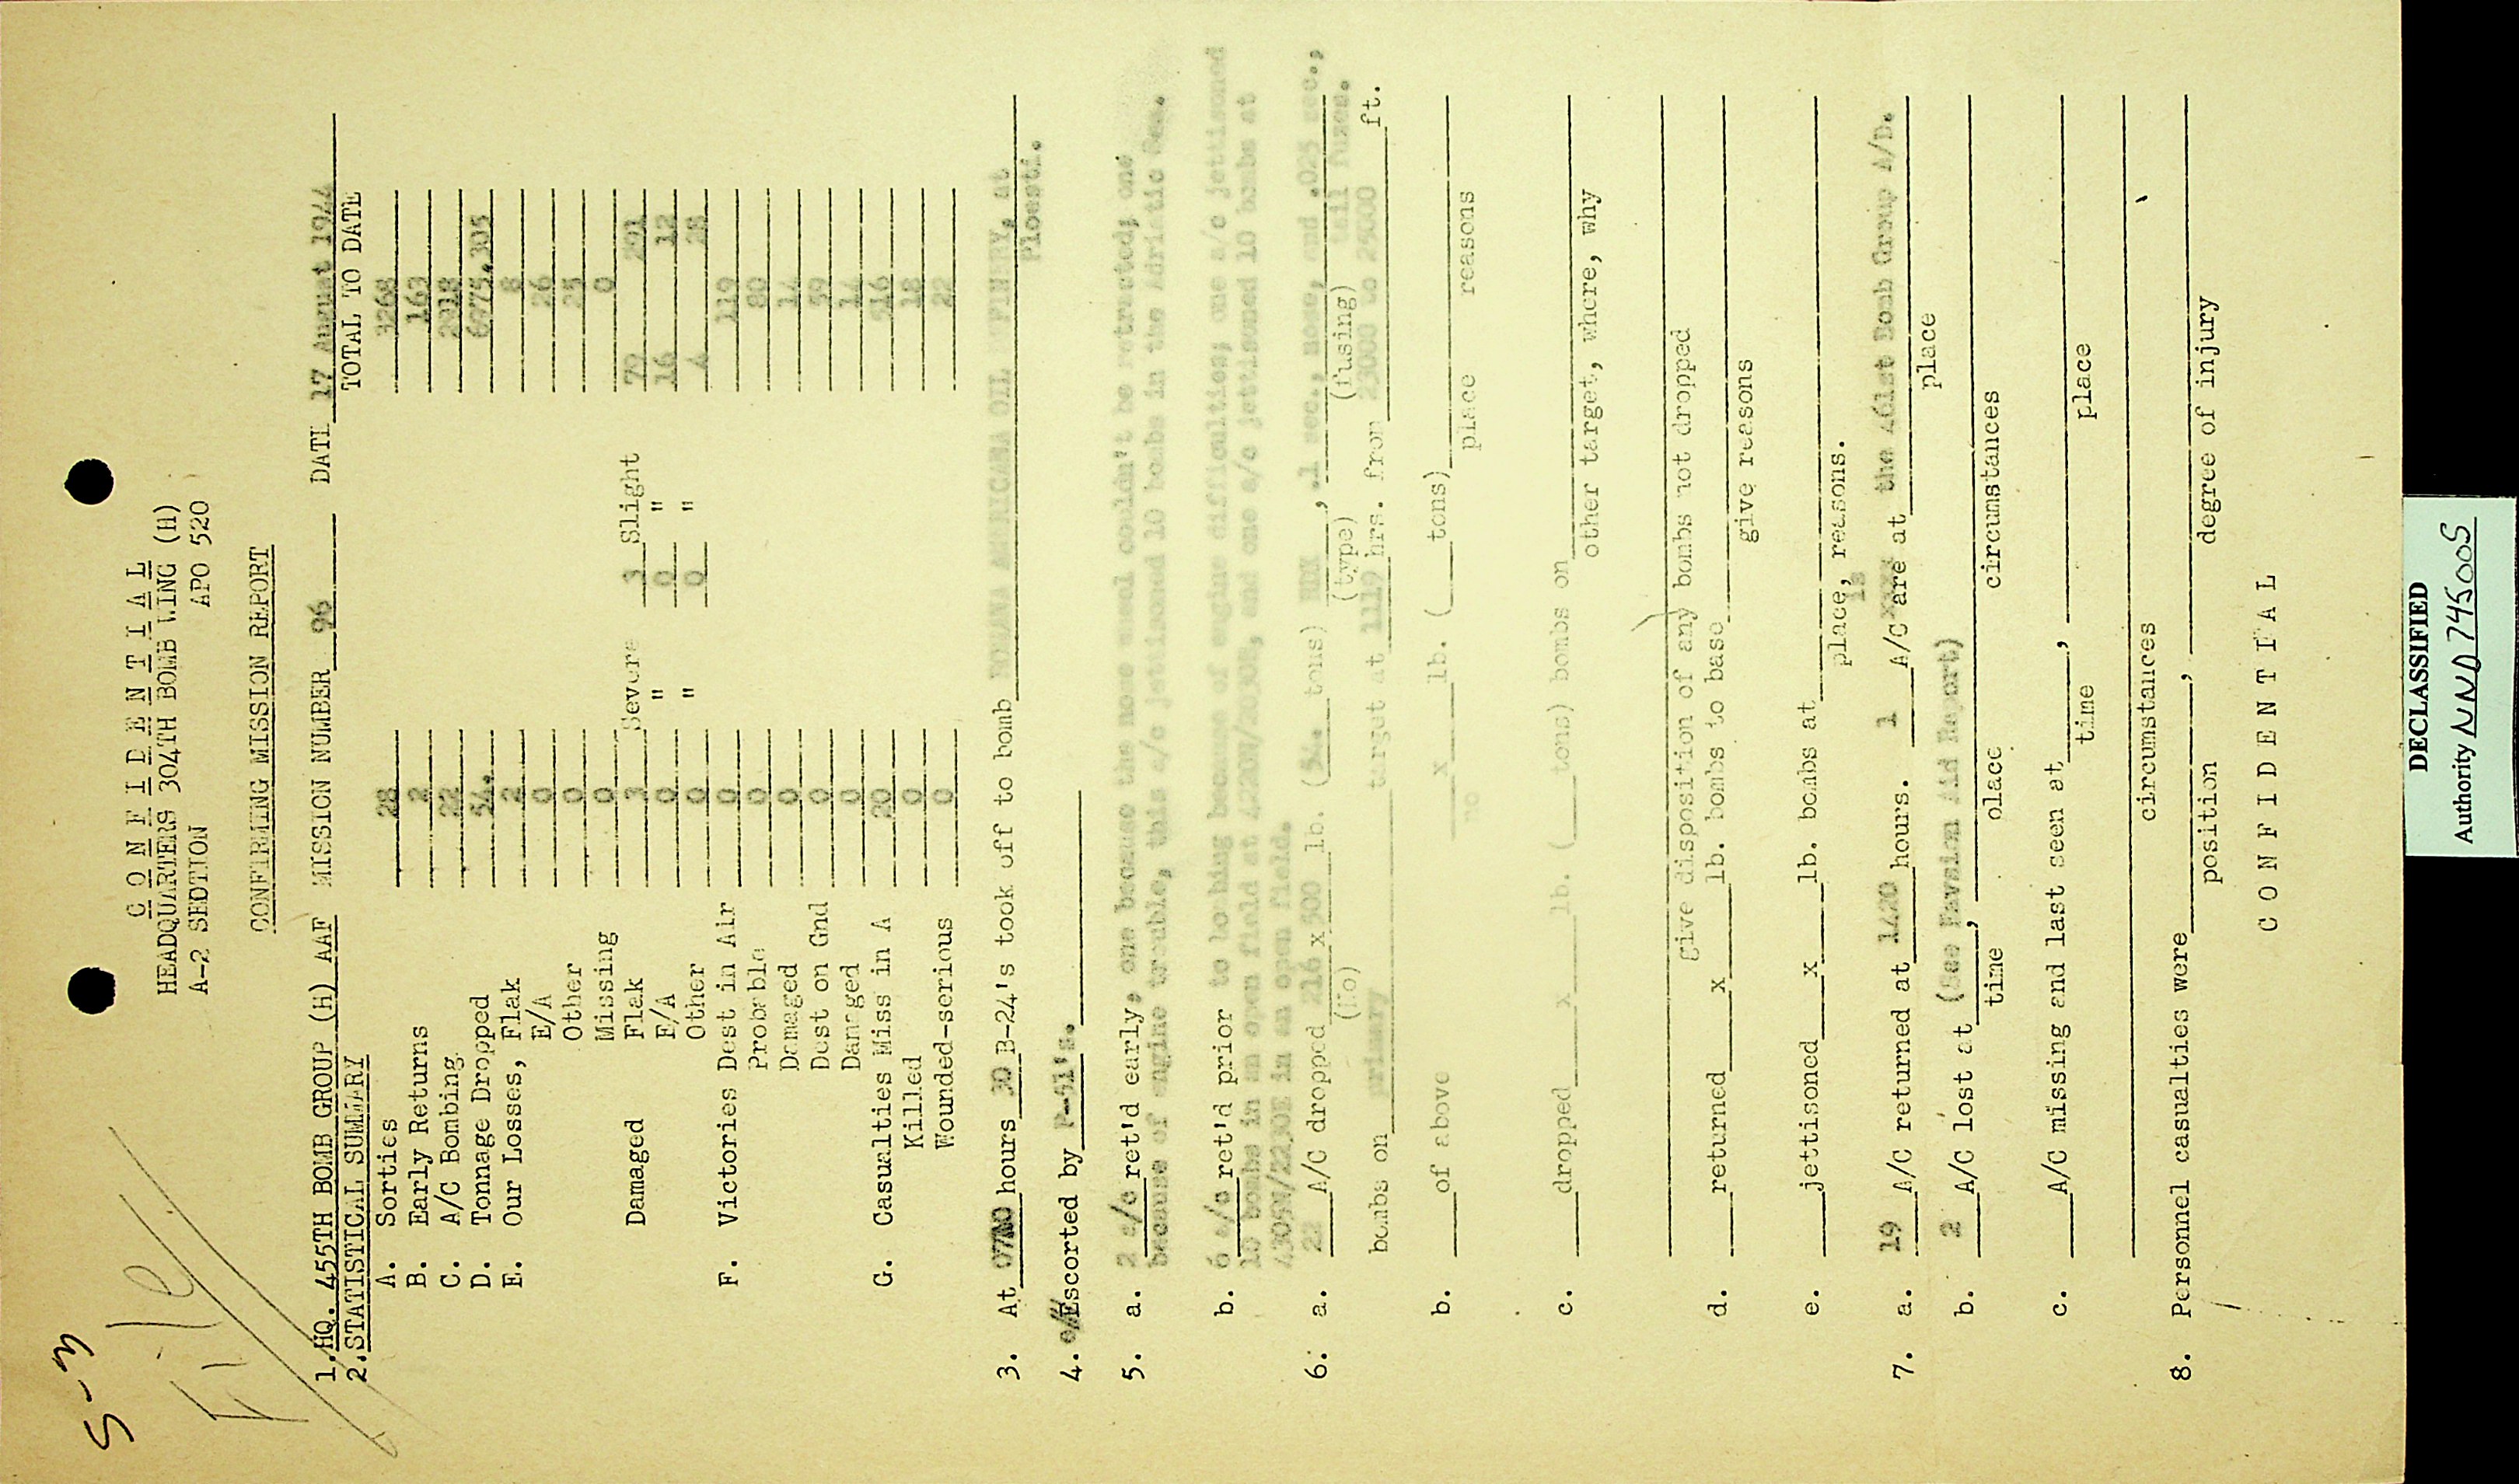 S-3
File
C O N F I D E N T I A L
HEADQUARTERS 304TH BOMB WING (H)
A-2 SECTION APO 520
CONFIRMING MISSION REPORT
1. HQ. 455TH BOMB GROUP (H) AAF MISSION NUMBER 96 DATE 17 August 1944
2. STATISTICAL SUMMARY TOTAL TO DATE
A. Sorties 28 3268
B. Early Returns 2 163
C. A/C Bombing 22 2918
D. Tonnage Dropped 54. 6775.305
E. Our Losses, Flak 2 8
E/A 0 26
Other 0 25
Missing 0 0
Damaged Flak 3 Severe 3 Slight 70 291
E/A 0 " 0 " 16 12
Other 0 " 0 " 4 28
F. Victories Dest in Air 0 119
Probable 0 80
Damaged 0 14
Dest on Gnd 0 59
Damaged 0 14
G. Casualties Miss in A 20 516
Killed 0 18
Wounded-serious 0 22
3. At hours 30 B-24's took off to bomb ROMANA AMERICANA OIL REFINERY, at
Ploesti.
4. Escorted by P-51's.
5. a. 2 a/c ret'd early, one because the nose wheel couldn't be retracted; one
because of engine trouble, this a/c jettisoned 10 bombs in the Adriatic Sea.
b. 6 a/c ret'd prior to bombing because of engine difficulties; one a/c jettisoned
10 bombs in an open field at 4420N/2030E, and one a/c jettisoned 10 bombs at
4305N/2230E in an open field.
6. a. 22 A/C dropped 216 x 500 lb. (54. tons) RDX, .1 sec., nose, and .025 sec.,
(No) (type) (fusing) tail fuzes.
bombs on primary target at 1119 hrs. from 23000 to 25000 ft.
b. of above x lb. ( tons)
no place reasons
c. dropped x lb. ( tons) bombs on
other target, where, why
give disposition of any bombs not dropped
d. returned x lb. bombs to base
give reasons
e. jettisoned x lb. bombs at
place, reasons.
7. a. 19 A/C returned at 1420 hours. 1 A/C is are at the 461st Bomb Group A/D.
place
b. 2 A/C lost at (See Favsim Aid Report)
time, place circumstances
c. A/C missing and last seen at ,
time place
circumstances
8. Personnel casualties were ,
position degree of injury
C O N F I D E N T I A L
DECLASSIFIED
Authority NND 745005